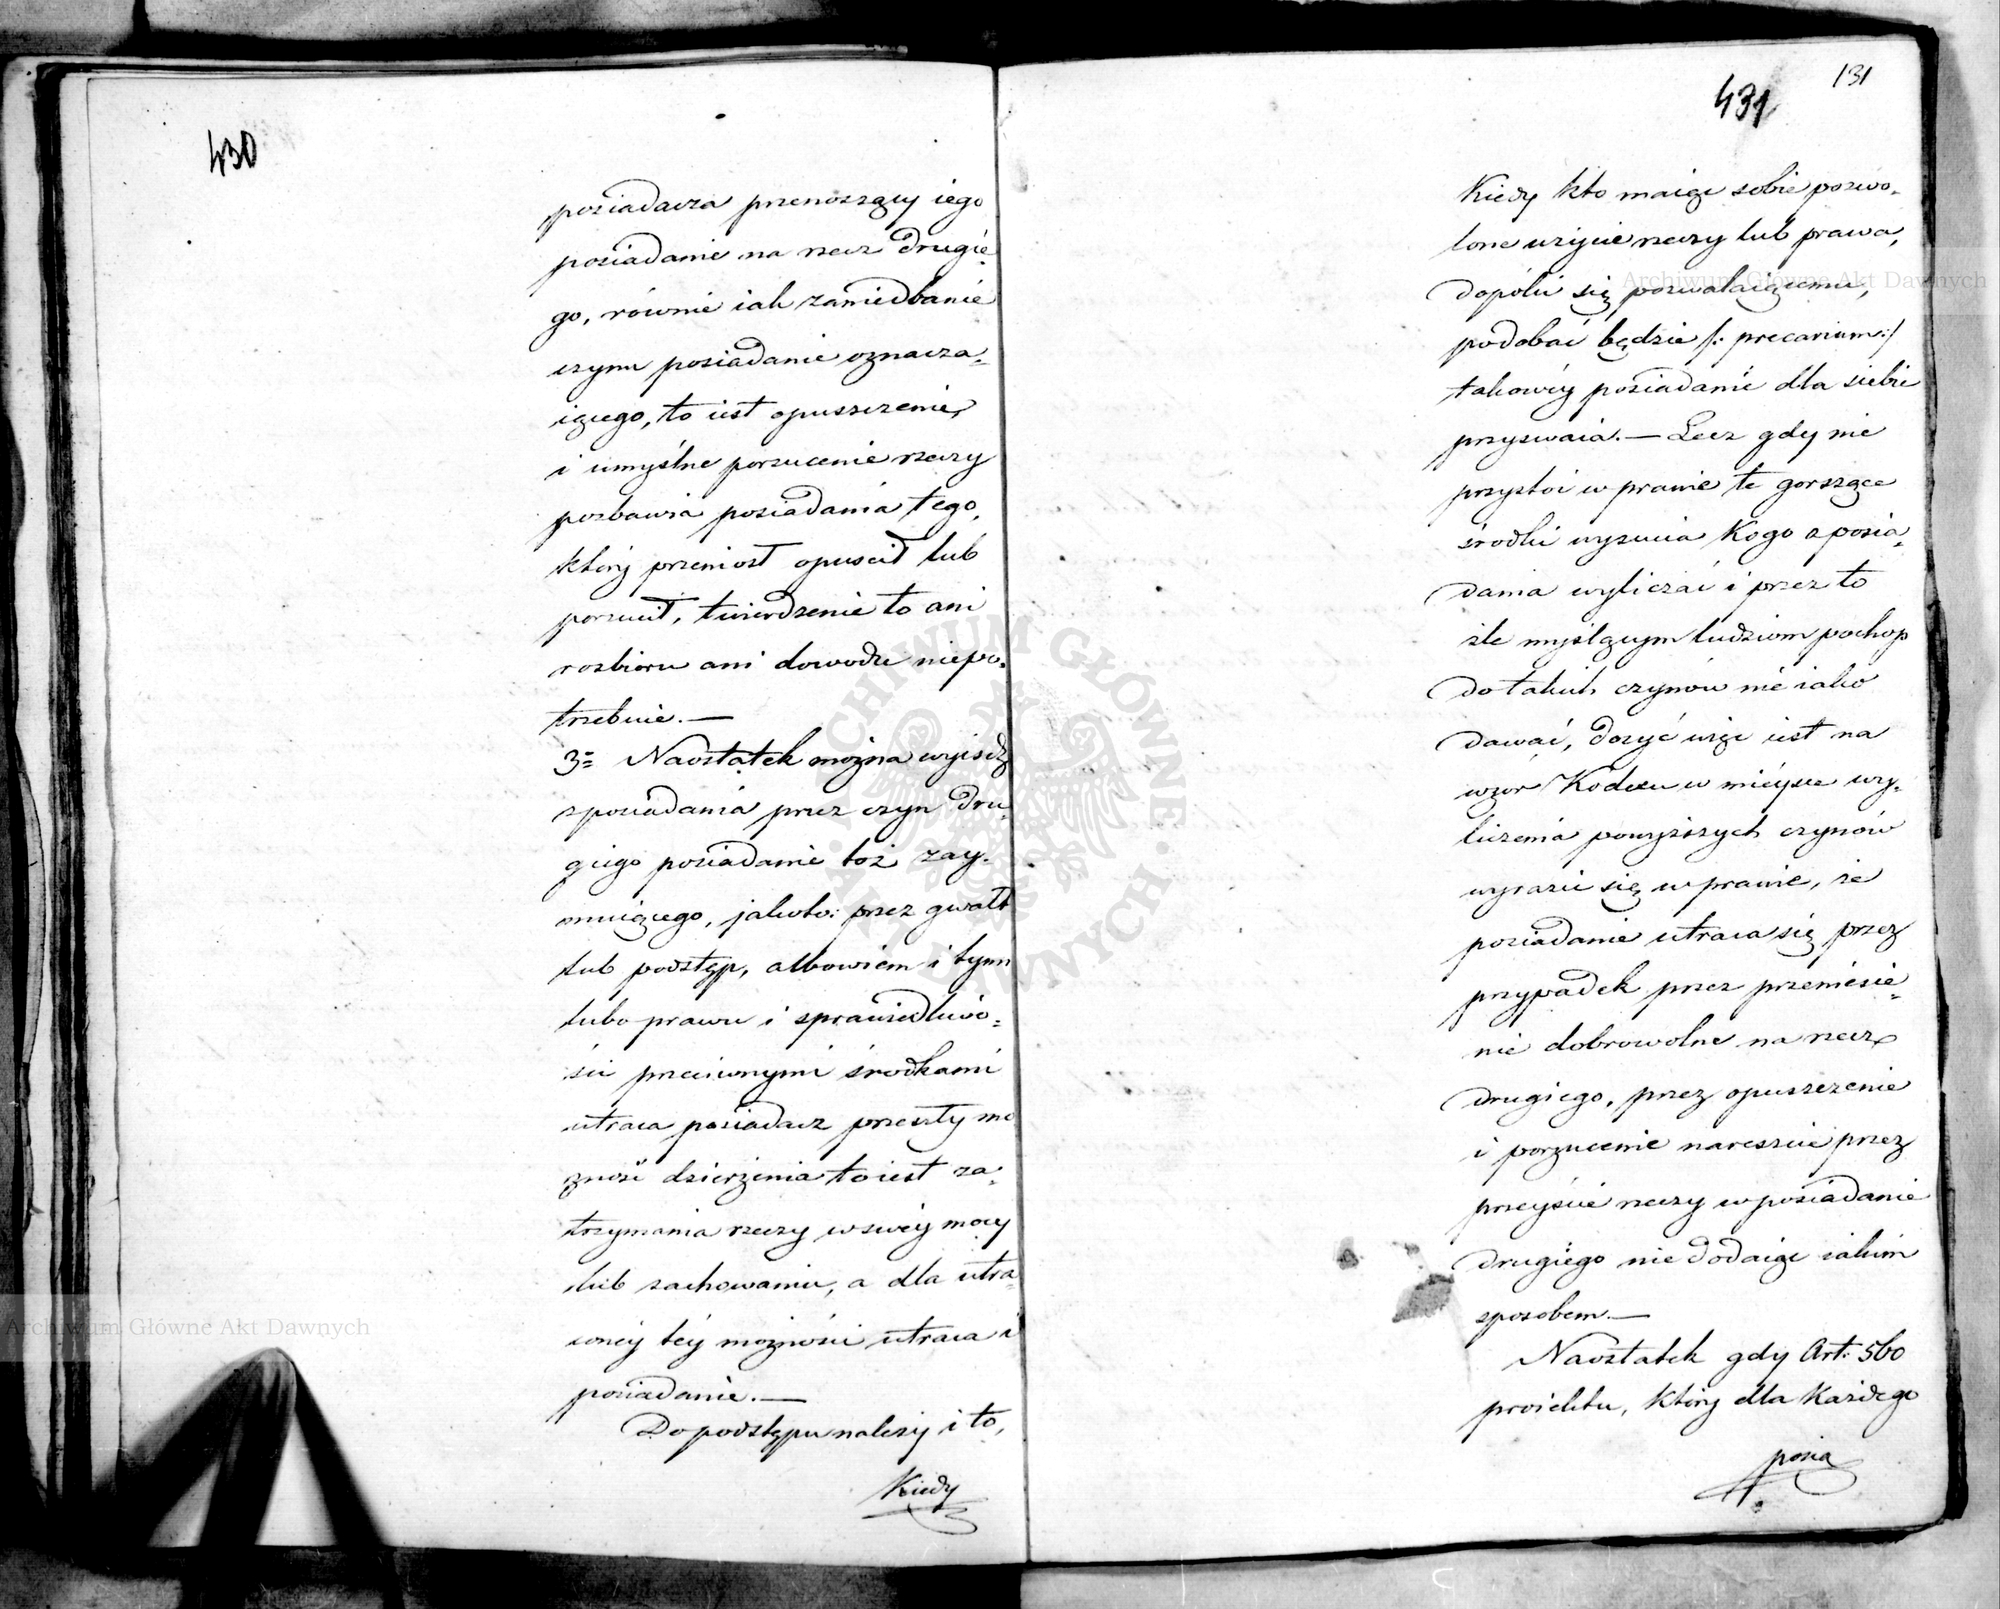 430
posiadacza przenoszący iego
posiadanie na rzecz drugie-
go, równie iak zaniedbanie
czynu posiadanie oznacza-
iącego, to iest opuszczenie,
i umyślne porzucenie rzeczy
pozbawia posiadania tego,
który przeniosł opuscił lub
porzucił, twierdzenie to ani
rozbioru ani dowodu niepo-
trzebuie.—
3= Naostatek można wyiśdź
z posiadania przez czyn dru-
giego posiadanie toż zay-
muiącego, jakoto: przez gwałt
lub podstęp, albowiem i tymi
lubo prawu i sprawiedliwo-
ści przeciwnymi środkami
utraca posiadacz przeszły mo
żność dzierżenia to iest za-
trzymania rzeczy w swéy mocy
lub zachowaniu, a dla utra-
coney téy możności utraca i
posiadanie.—
Do podstępu należy i to,
Kiedy
131
431
Kiedy kto maiąc sobie pozwo-
lone użycie rzeczy lub prawa,
dopóki się pozwalaiącemu,
podobać będzie /: precarium:/
takowéy posiadanie dla siebie
przyswaia.— Lecz gdy nie
przystoi w prawie te gorszące
środki wyzucia Kogo z posia-
dania wyliczać i przez to
źle myślącym ludziom pochop
do takich czynów nieiako
dawać, dosyć więc iest na
wzór Kodexu w mieysce wy-
liczenia powyższych czynów
wyrazić się w prawie, że
posiadanie utraca się przez
przypadek przez przeniesie-
nie dobrowolne na rzecz
drugiego, przez opuszczenie
i porzucenie nareszcie przez
przeyście rzeczy w posiadanie
drugiego nie dodaiąc iakim
sposobem.—
Naostatek gdy Art: 560
proiektu, który dla Każdego
posia
Archiwum Główne Akt Dawnych
Archiwum Główne Akt Dawnych
ARCHIWUM GŁÓWNE AKT DAWNYCH